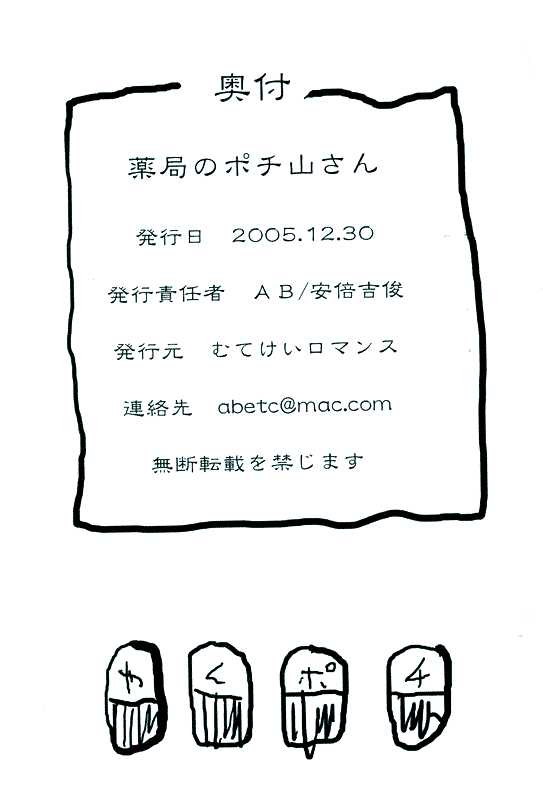 奥付
薬局のポチ山さん
発行日　2005.12.30
発行責任者　ＡＢ/安倍吉俊
発行元　むてけいロマンス
連絡先　abetc@mac.com
無断転載を禁じます
や く ポ チ